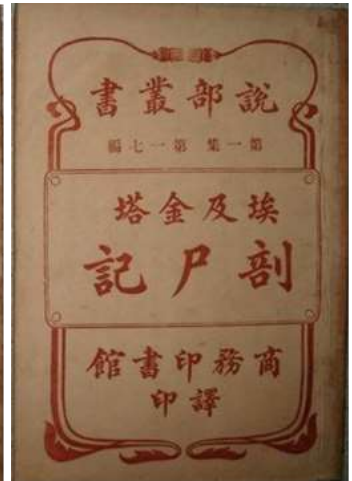 說部叢書
第一集 第一七編
埃及金塔
剖尸記
商務印書館
譯印